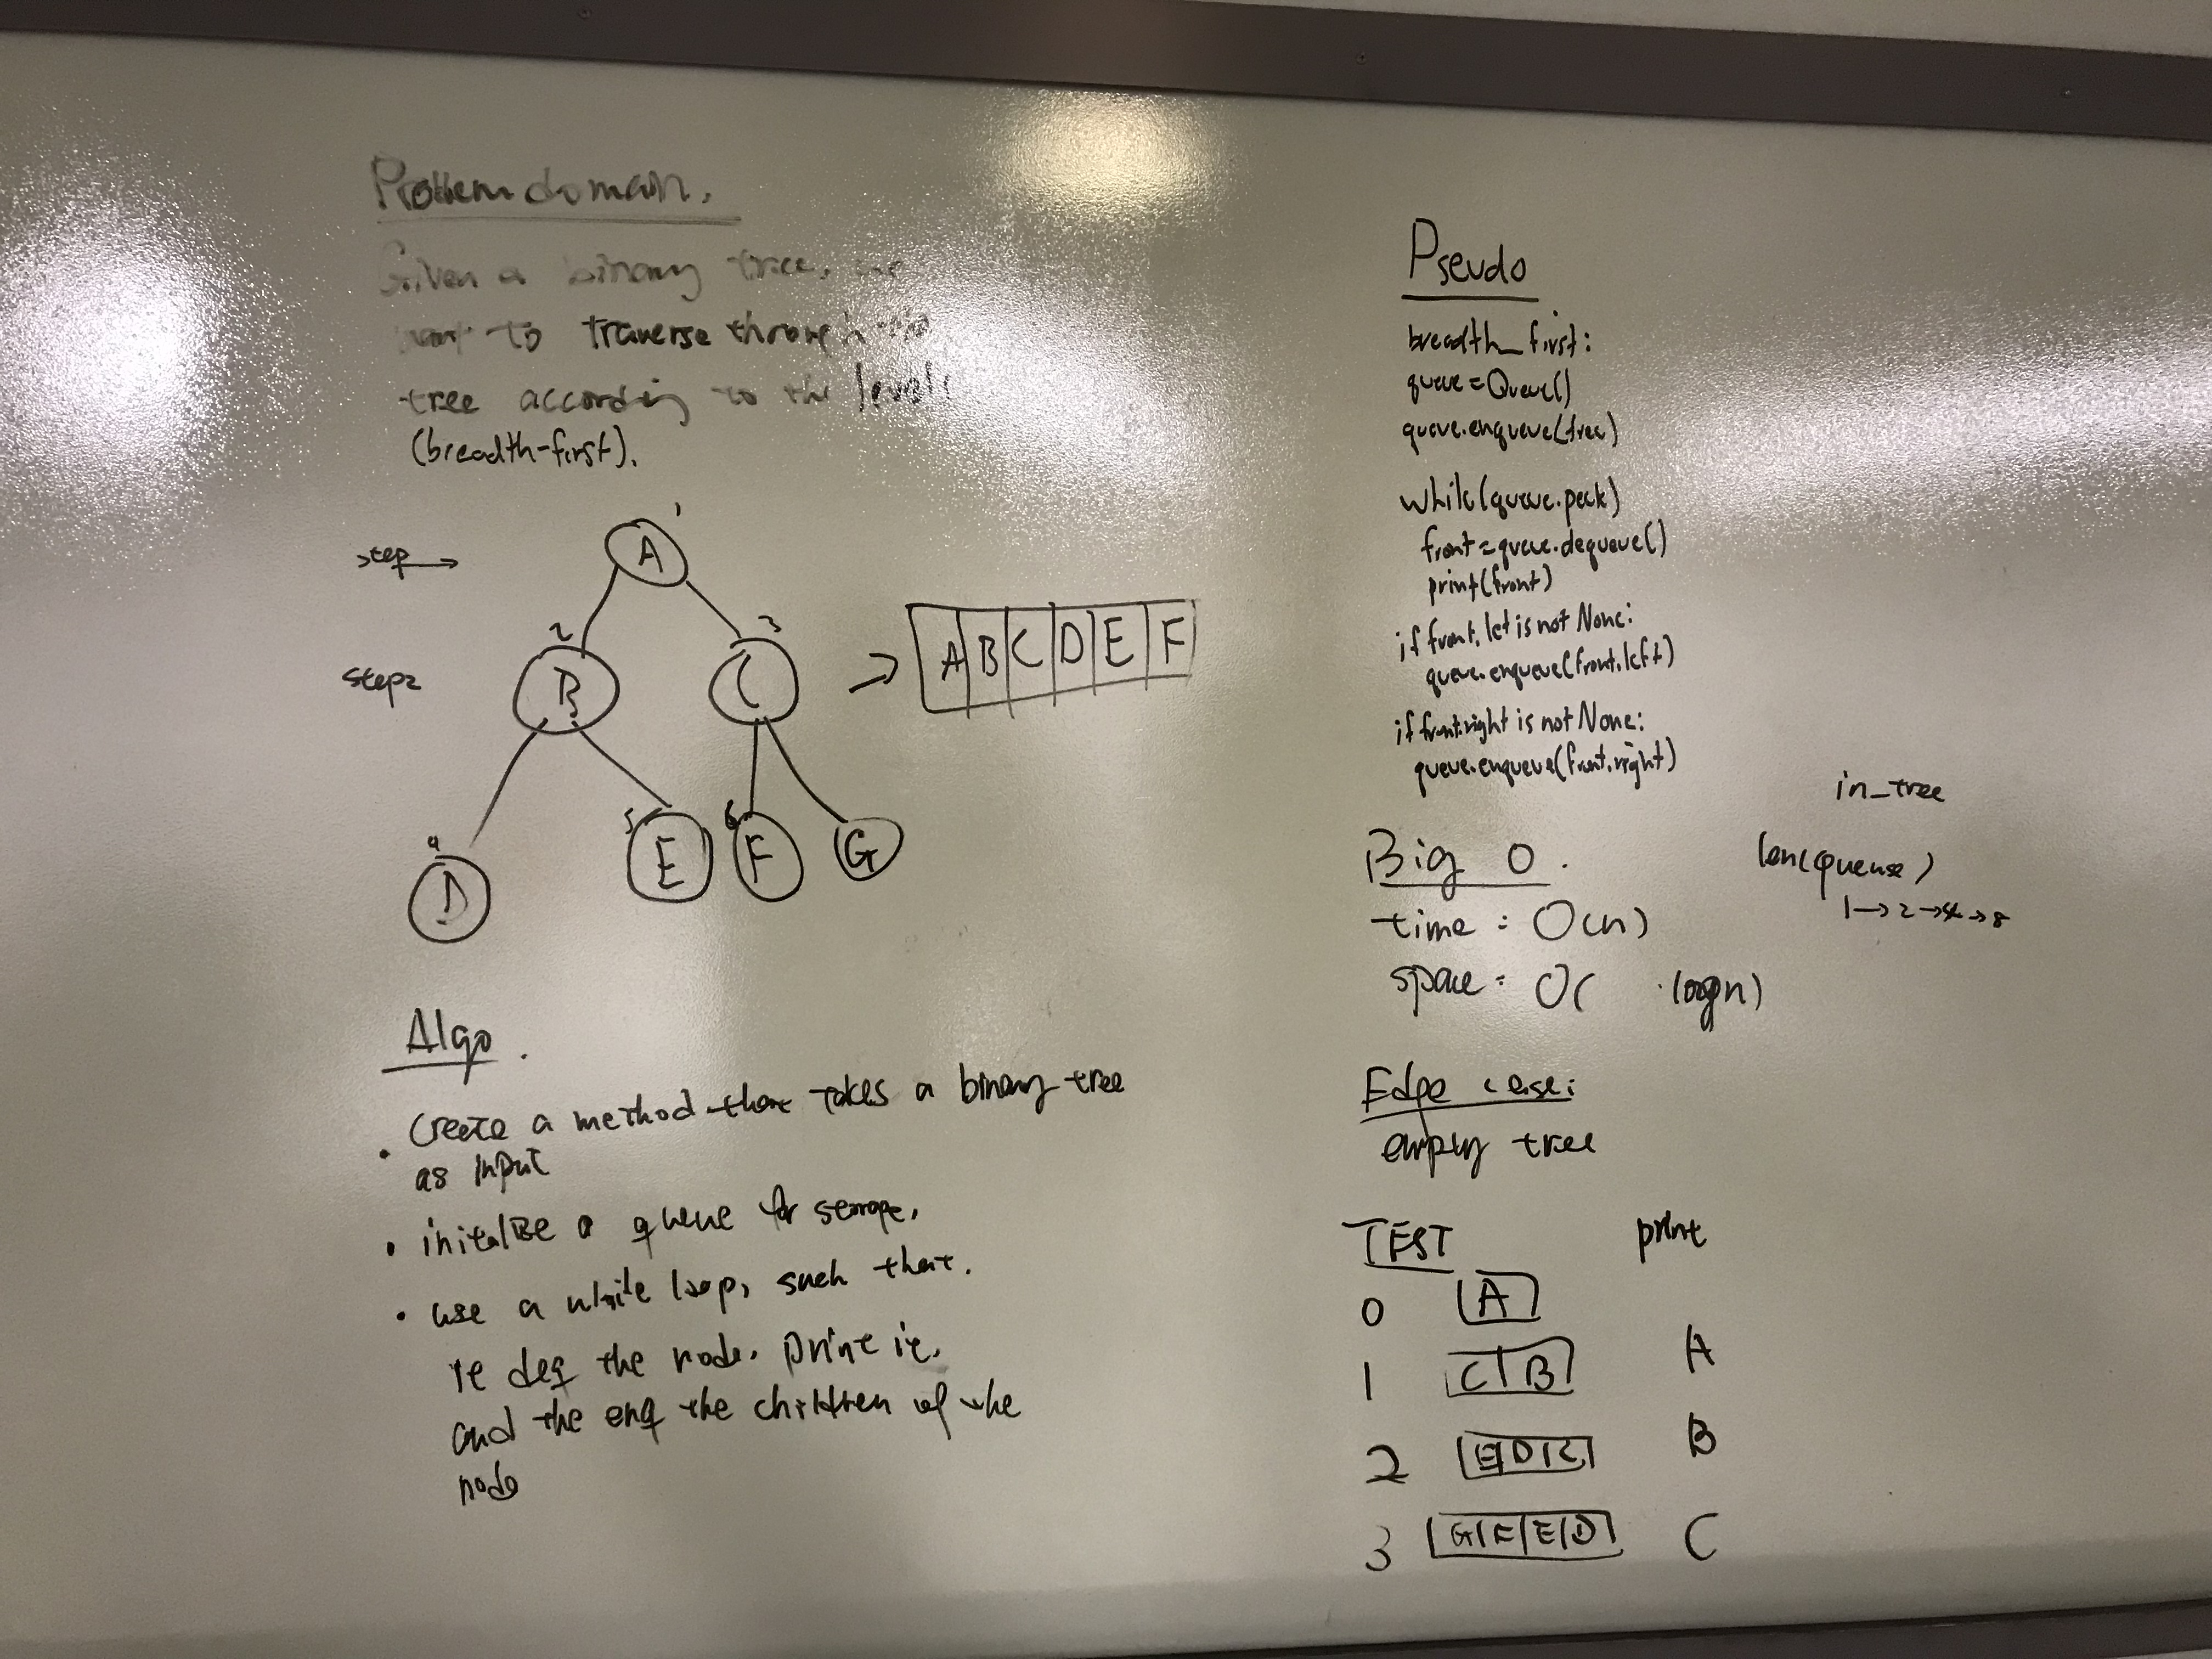 Problem domain.
Given a binary tree, we
want to traverse through the
tree according to the levels
(breadth-first).
step
step2
1
A
2
B
3
C
4
D
5
E
6
F
G
A B C D E F
Algo.
• Create a method that takes a binary tree
as input
• initalize a queue for storage.
• use a while loop, such that.
deq the node. print it.
and the enq the children of the
node
Pseudo
breadth_first:
queue = Queue()
queue.enqueue(tree)
while(queue.peek)
front = queue.dequeue()
print(front)
if front.let is not None:
queue.enqueue(front.left)
if front.right is not None:
queue.enqueue(front.right)
in_tree
len(queuse)
1 → 2 → 4 → 8
Big O.
time: O(n)
space: O( logn)
Edge case:
empty tree
TEST print
0 A
1 C B A
2 E D C B
3 G F E D C